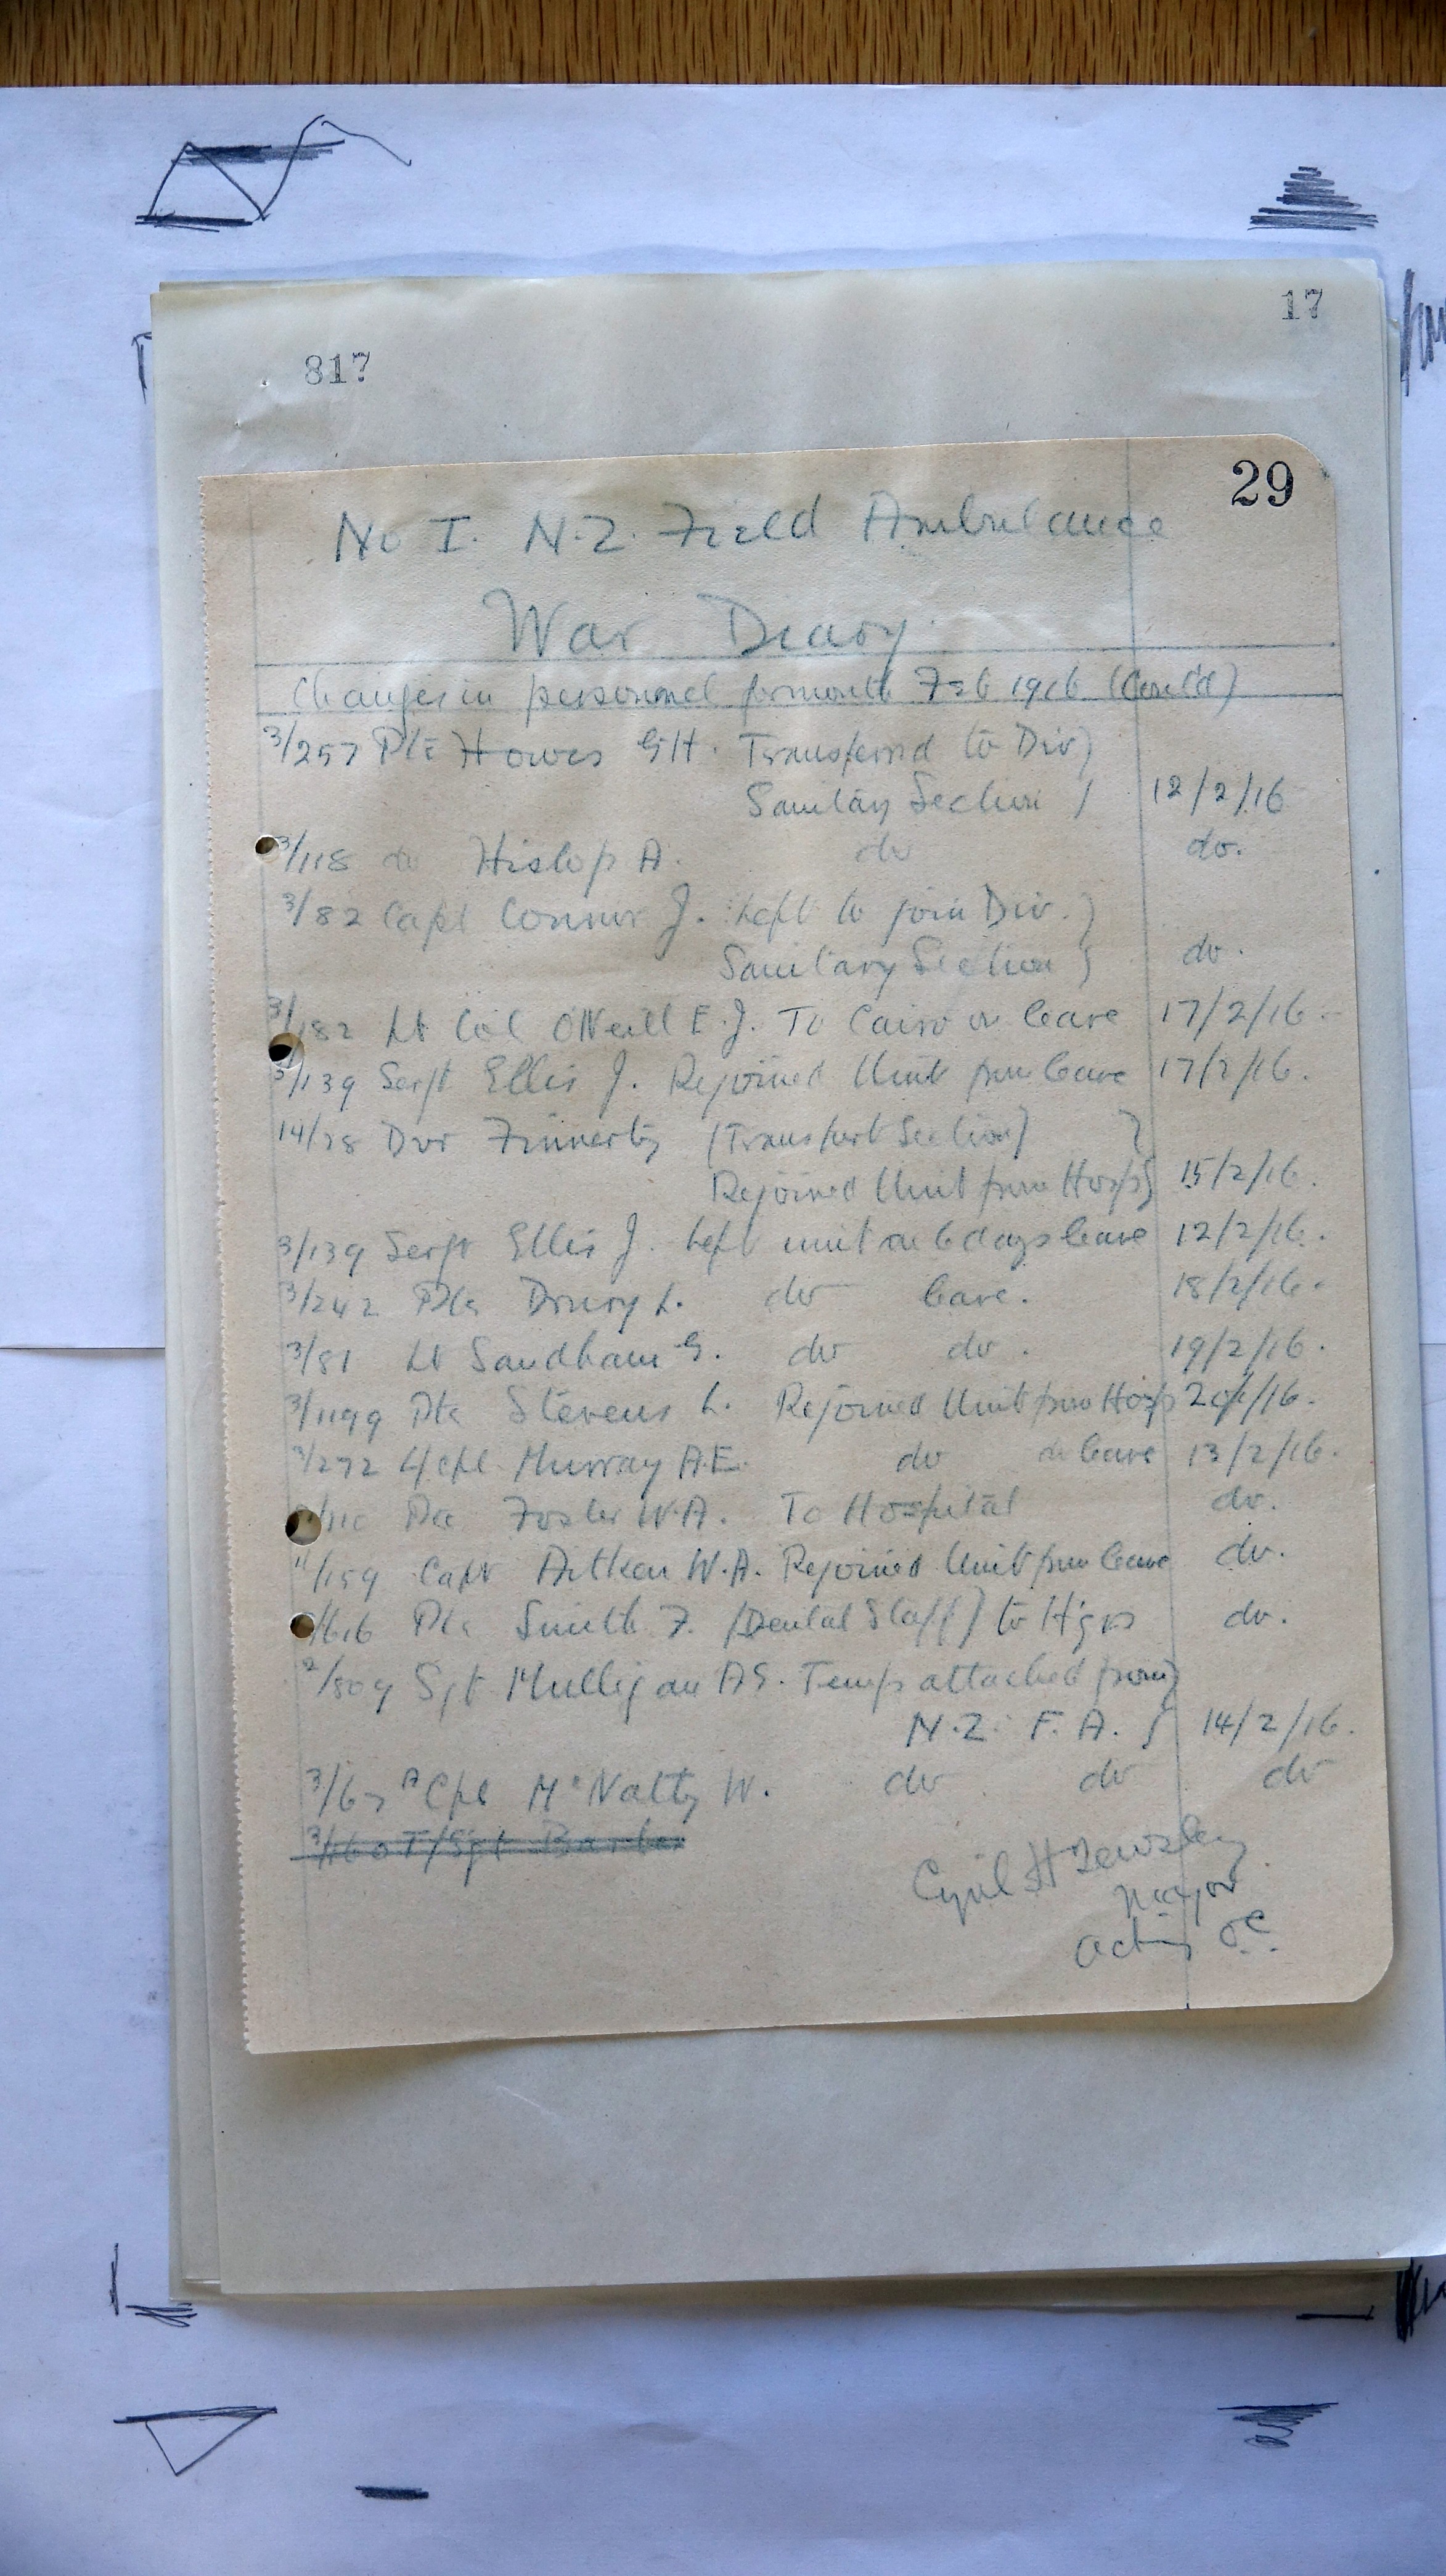 17
817
29
No I. N.Z. Field Ambulance
War Diary.
Changes in personnel for month Feb 1916 (Cont'd)
3/257 Pte Howes G H. Transferred to Div)
Sanitary Section ) 12/2/16
3/118 do Hislop A. do do.
3/82 Capt Connor J. Left to join Div. }
Sanitary Section } do.
3/182 Lt Col O'Neill E.J. To Cairo on leave 17/2/16.
3/139 Sergt Ellis J. Rejoined Unit from leave 17/2/16.
14/28 Dvr Finnerty (Transport Section) }
Rejoined Unit from Hosp} 15/2/16.
3/139 Sergt Ellis J. Left unit on 6 days leave 12/2/16.
3/242 Pte Drury L. do leave. 18/2/16.
3/81 Lt Sandham G. do do. 19/2/16.
3/1199 Pte Stevens L. Rejoined Unit from Hosp
3/272 L/Cpl Murray A.E. do do leave 13/2/16.
Pte Foster W.A. To Hospital do.
11/159 Capt Aitken W.A. Rejoined Unit from leave do.
Pte Smith F. (Dental Staff) to Hqrs do.
2/809 Sgt Mulligan A G. Temp attached from}
N.Z. F.A. } 14/2/16.
3/67 Cpl McNatty W. do do do
T/Sgt Barber
Cyril H Tewsley
Major
Acting O.C.